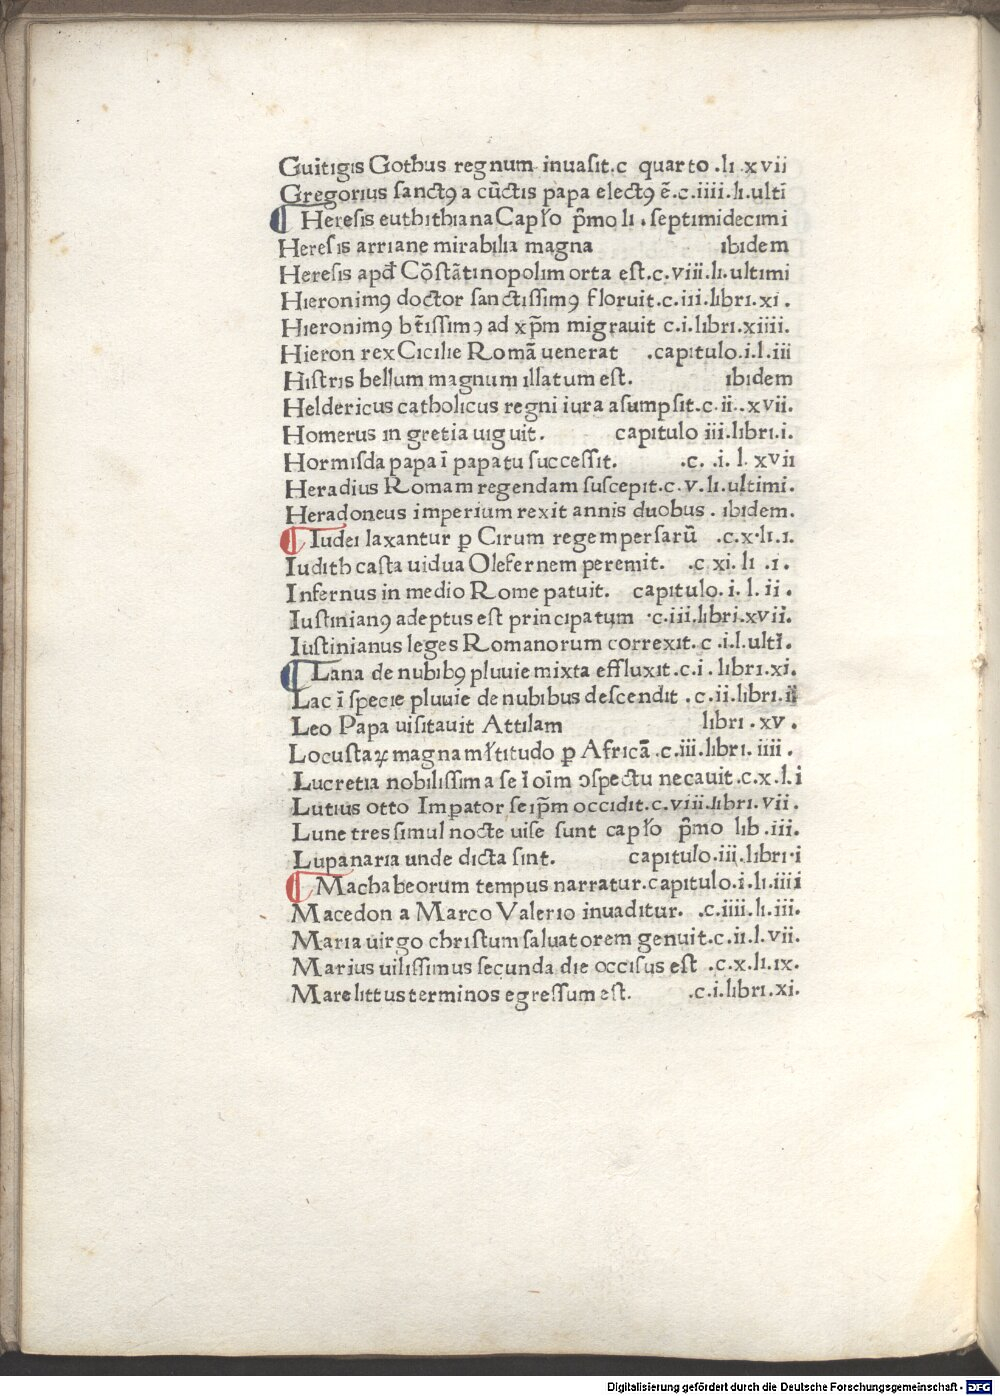 Guitigis Gothus regnum inuaſit.c quarto .li xvii
Gregorius ſanctꝰ a cūctis papa electꝰ ē.c.iiii.li.ulti
¶ Hereſis euthithiana Capl̓o p̄mo li . ſeptimidecimi
Hereſis arriane mirabilia magna ibidem
Hereſis apd̓ Cōſtātinopolim orta eſt.c.viii.li.ultimi
Hieronimꝰ doctor ſanctiſſimꝰ floruit.c.iii.libri.xi .
Hieronimꝰ bt̄iſſimꝰ ad xp̄m migrauit c.i.libri.xiiii.
Hieron rex Cicilie Romā uenerat .capitulo.i.l.iii
Hiſtris bellum magnum illatum eſt. ibidem
Heldericus catholicus regni iura aſumpſit.c.ii..xvii.
Homerus in gretia uiguit. capitulo iii.libri.i.
Hormiſda papa ī papatu ſucceſſit. .c. .i. l. xvii
Heradius Romam regendam ſuſcepit.c.v.li.ultimi.
Heradoneus imperium rexit annis duobus . ibidem.
¶ Iudei laxantur ꝑ Cirum regem perſarū .c.x.li.i.
Iudith caſta uidua Olefernem peremit. .c xi. li .i.
Infernus in medio Rome patuit. capitulo. i. l. ii .
Iuſtinianꝰ adeptus eſt principatum .c.iii.libri.xvii.
Iuſtinianus leges Romanorum correxit. c .i.l.ulti.
¶ Lana de nubibꝰ pluuie mixta effluxit.c.i . libri.xi.
Lac ī ſpecie pluuie de nubibus deſcendit . c.ii.libri.ii
Leo Papa uiſitauit Attilam libri . xv .
Locuſtaꝝ magna ml̓titudo ꝑ Africā .c.iii.libri. iiii .
Lucretia nobiliſſima ſe ī oīm ↄſpectu necauit.c.x.l.i
Lutius otto Imꝑator ſeip̄m occidit.c.viii.libri. vii .
Lune tres ſimul nocte uiſe ſunt capl̓o p̄mo lib .iii.
Lupanaria unde dicta ſint. capitulo.iii.libri.i
¶ Machabeorum tempus narratur.capitulo.i.li.iiii
Macedon a Marco Valerio inuaditur. .c.iiii.li.iii.
Maria uirgo chriſtum ſaluatorem genuit.c.ii.l.vii.
Marius uiliſſimus ſecunda die occiſus eſt .c.x.li.ix.
Mare littus terminos egreſſum eſt. .c.i.libri.xi.
Digitalisierung gefördert durch die Deutsche Forschungsgemeinschaft - DFG